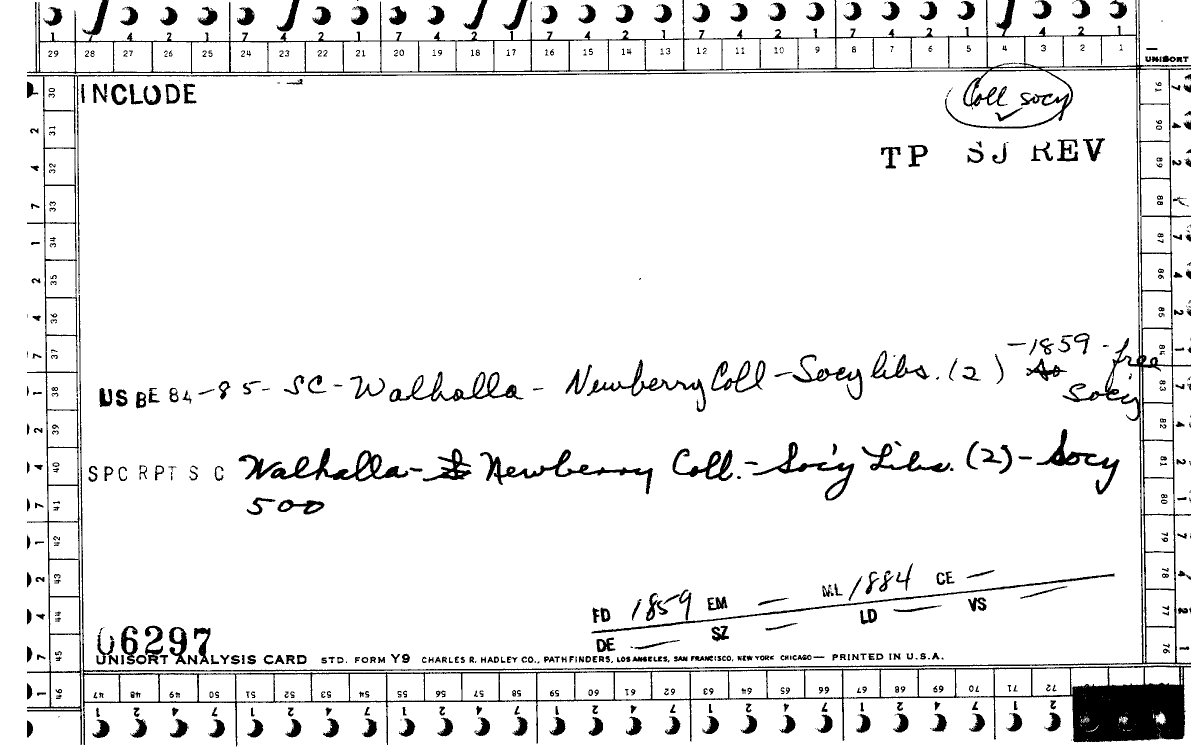 1 7 4 2 1 7 4 2 1 7 4 2 1 7 4 2 1 7 4 2 1 7 4 2 1 7 4 2 1
29 28 27 26 25 24 23 22 21 20 19 18 17 16 15 14 13 12 11 10 9 8 7 6 5 4 3 2 1
UNISORT
INCLUDE
Coll socy
TP SJ REV
-1859 - free
US BE 84-85-SC-Walhalla-Newberry Coll-Socy libs. (2)
Socy
SPC RPT S C Walhalla- Newberry Coll.-Soc'y Libs. (2)-Socy
500
FD 1859 EM — ML 1884 CE —
DE — SZ — LD — VS —
06297
UNISORT ANALYSIS CARD STD. FORM Y9 CHARLES R. HADLEY CO., PATHFINDERS, LOS ANGELES, SAN FRANCISCO, NEW YORK CHICAGO— PRINTED IN U.S.A.
30 31 32 33 34 35 36 37 38 39 40 41 42 43 44 45 46
91 90 89 88 87 86 85 84 83 82 81 80 79 78 77 76
47 48 49 50 51 52 53 54 55 56 57 58 59 60 61 62 63 64 65 66 67 68 69 70 71 72
1 2 4 7 1 2 4 7 1 2 4 7 1 2 4 7 1 2 4 7 1 2 4 7 1 2